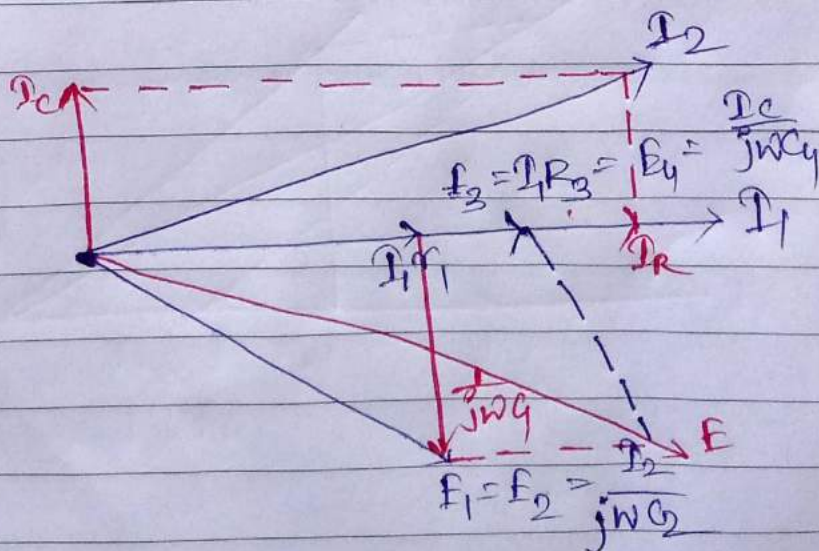 I2
Ic
E3 = I1R3 = E4 = Ic/jωC4
I1
I1r1
IR
I/jωC1
E
E1 = E2 = I2/jωC2